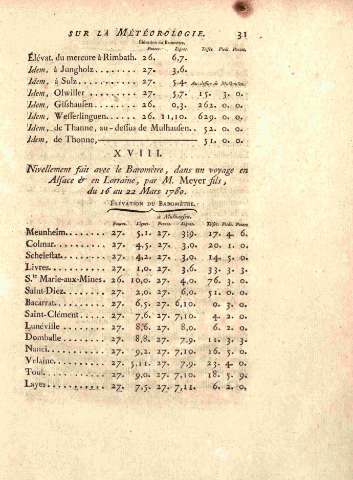 SUR LA MÉTÉOROLOGIE. 31
Élévation du Baromètre.
Pouces. Lignes. Toises. Pieds. Pouces.
Élévat. du mercure à Rimbath. 26. 6,7.
Idem, à Jungholz ........ 27. 3,6.
Idem, à Sulz ........ 27. 5,4. Au-dessus de Mulhausen.
Idem, Olwiller ........ 27. 5,7. 15. 3. 0.
Idem, Gifshausen ........ 26. 0,3. 262. 0. 0.
Idem, Wesserlinguen .... 26. 11,10. 629. 0. 0.
Idem, de Thanne, au-dessus de Mulhausen .. 52. 0. 0.
Idem, de Thonne, ............ 51. 0. 0.
XVIII.
Nivellement fait avec le Baromètre, dans un voyage en
Alsace & en Lorraine, par M. Meyer fils,
du 16 au 22 Mars 1780.
ÉLÉVATION DU BAROMÈTRE.
à Mulhausen.
Pouces. Lignes. Pouces. Lignes. Toises. Pieds. Pouces.
Meunheim ........ 27. 5,1. 27. 3,9. 17. 4. 6.
Colmar ........ 27. 4,5. 27. 3,0. 20. 1. 0.
Schelestat ........ 27. 4,2. 27. 3,0. 14. 5. 0.
Livrez ........ 27. 1,0. 27. 3,6. 33. 3. 3.
S.te Marie-aux-Mines. 26. 10,0. 27. 4,0. 76. 3. 0.
Saint-Diez ........ 27. 2,0. 27. 6,0. 51. 0. 0.
Bacarrat ........ 27. 6,5. 27. 6,10. 0. 3. 0.
Saint-Clément ...... 27. 7,6. 27. 7,10. 4. 2. 0.
Lunéville ........ 27. 8,6. 27. 8,0. 6. 2. 0.
Domballe ........ 27. 8,8. 27. 7,9. 11. 3. 3.
Nanci ........ 27. 9,2. 27. 7,10. 16. 5. 0.
Velaine ........ 27. 5,11. 27. 7,9. 23. 4. 0.
Toul ........ 27. 9,0. 27. 7,10. 18. 5. 9.
Layes ........ 27. 7,5. 27. 7,11. 6. 2. 0.